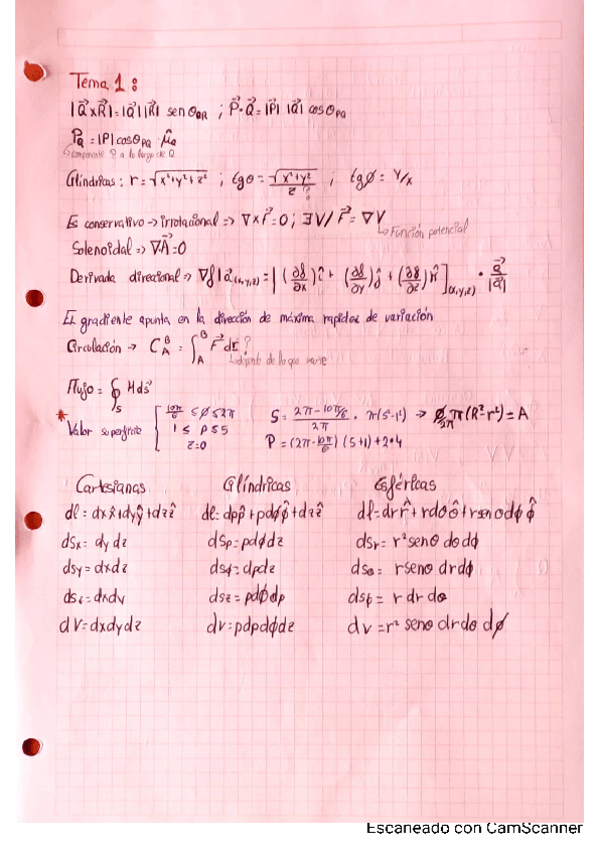 Tema 1:
|Q⃗xR⃗|=|Q⃗||R⃗| sen θQR ; P⃗·Q⃗=|P⃗| |Q⃗| cosθPQ
P⃗Q=|P|cosθPQ · μ̂Q
componente P a lo largo de Q
Cilíndricas: r=√(x²+y²+z²) ; tgθ=√(x²+y²)/z ? ; tgø= y/x
Es conservativo → irrotacional => ∇×F⃗=0 ; ∃V/ F⃗=∇V
Función potencial
Solenoidal => ∇A⃗=0
Derivada direcional => ∇f|a⃗(x,y,z)=[(∂f/∂x)î+(∂f/∂y)ĵ+(∂f/∂z)k̂](x,y,z) · a⃗/|a⃗|
El gradiente apunta en la dirección de máxima rapidez de variación
Circulación → C_A^B = ∫_A^B F⃗dr⃗?
depende de lo que varie
Flujo= ∮_S Hds⃗
* Valor superficie { 10π/6 ≤ø≤2π S= (2π-10π/6)/2π · π(5²-1²) → ø/2π π(R²-r²)=A
1 ≤ ρ ≤5 P=(2π-10π/6)(5+1)+2·4
z=0
Cartesianas Cilíndricas Esféricas
dl=dxx̂+dyŷ+dzẑ dl=dρρ̂+ρdϕϕ̂+dzẑ dl=drr̂+rdθθ̂+rsenθdϕϕ̂
dsx= dydz dsρ=ρdϕdz dsr=r²senθdθdϕ
dsy=dxdz dsϕ=dρdz dsθ= rsenθdrdϕ
dsz=dxdy dsz=ρdϕdρ dsϕ= rdrdθ
dV=dxdydz dv=ρdρdϕdz dv=r²senθdrdθdø
Escaneado con CamScanner